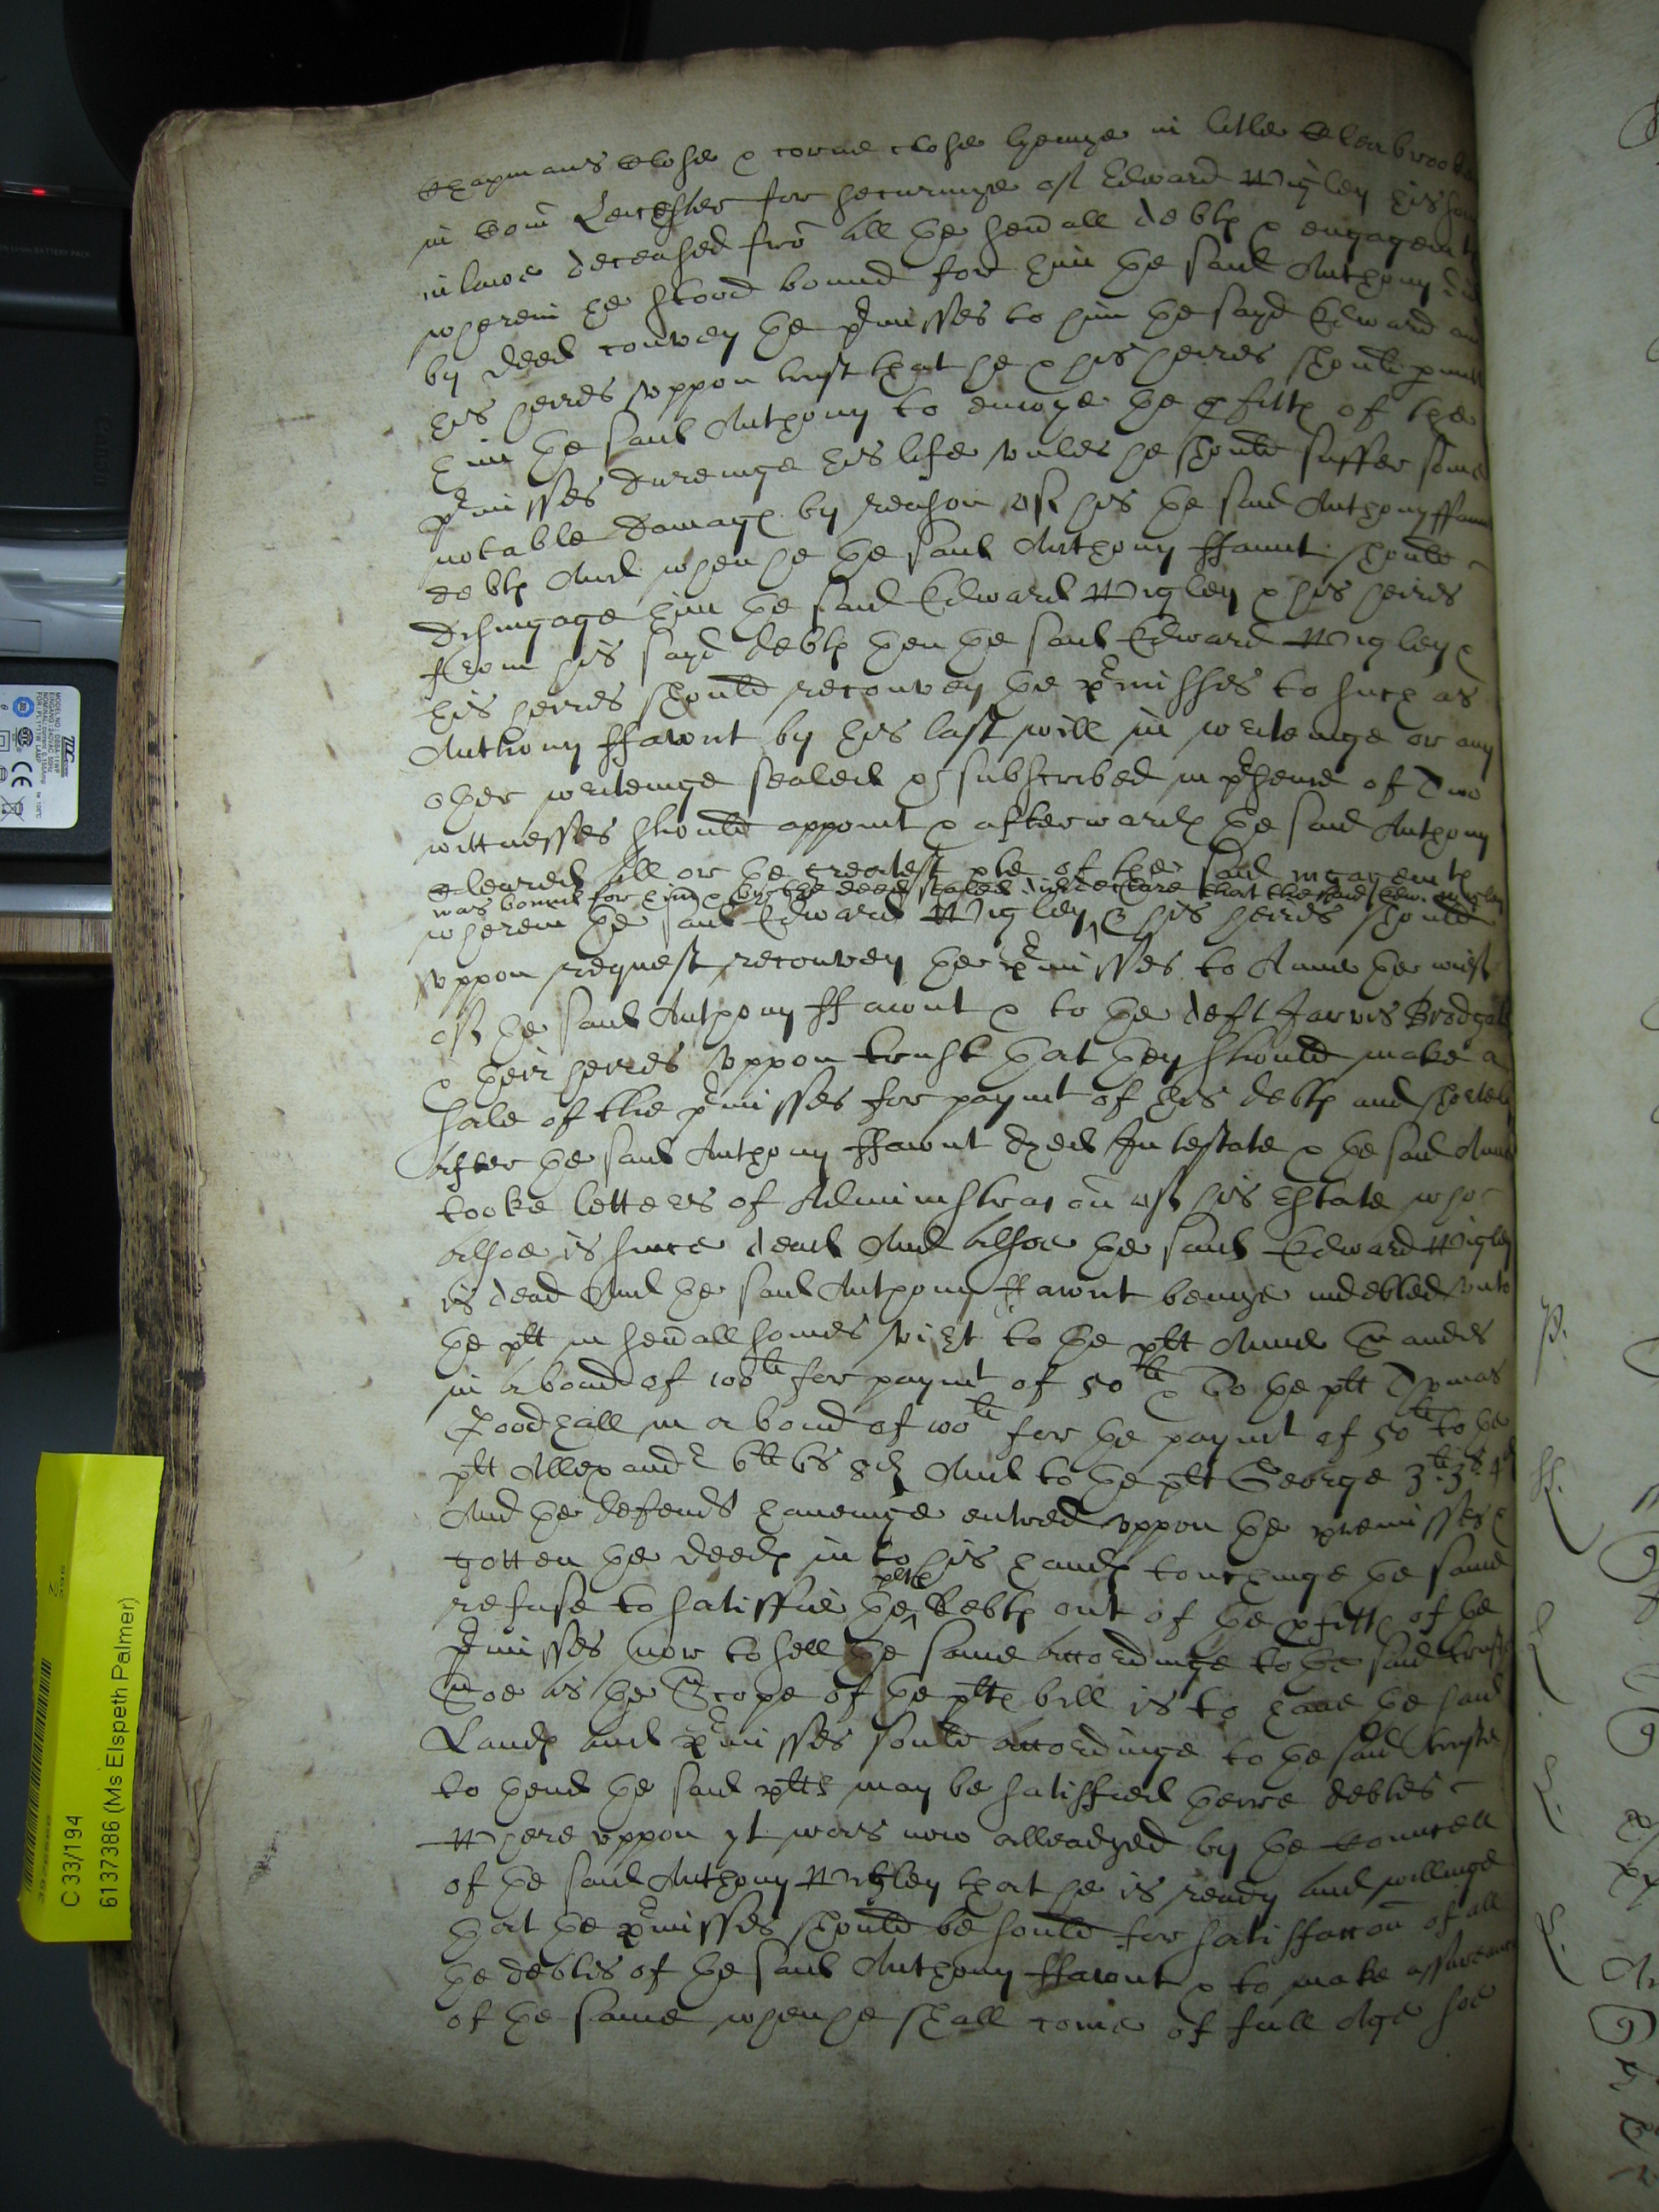 Chapmans Close & corne close lyeinge in litle Cleabrooke
in Com Leicester for secureinge of Edward Wigley his sonne
in lawe deceased fro all the sevall debts & engagemts
wherein he stood bound for him the said Anthony did
by deed convey the pmisses to him the sayd Edward and
his heires uppon trust that he & his heires should pmitt
him the said Anthony to enioye the pfitts of the
pmisses dureinge his life unles he should suffer some
notable damage by reason of his the said Anthony ffaunt
debts And when he the said Anthony ffaunt should
disingage him the said Edward Wigley & his heires
from his sayd debts then the said Edward Wigley &
his heires should reconvey the pmisses to such as
Anthony ffawnt by his last will in writeinge or any
other writeinge sealed & subscribed in psence of Two
wittnesses should appoint & afterwards the said Anthony
cleared all or the greatest pte of the said ingagemts
was bound for him & by the deed sealed did declare that the said Edw: Wigley
wherein the said Edward Wigley & his heires should
uppon request reconvey the pmisses to Anne the wief
of the said Anthony ffawnt & to the deft Jarvis Brodgate
& their heires uppon trust that they should make a
sale of the pmisses for paymt of his debts and shortely
after the said Anthony ffawnt dyed Intestate & the said Anne
tooke letters of Administracon of his Estate who
alsoe is since dead And alsoe the said Edward Wigley
is dead And the said Anthony ffawnt beinge indebted unto
the plt in sevall somes vizt to the plt Anne Sandes
in a bond of 100li for paymt of 50li & To the plt Thomas
Goodhall in a bond of 100li for the paymt of 50li to the
plt Allexandr 6li 6s 8d And to the plt George 3li 3s 4d
And the defends haveinge entred uppon the premisses &
gotten the deeds in to his hands touchinge the same
plts
refuse to satisffie the debts out of the pfitts of the
pmisses nor to sell the same accordinge to the said truste
Soe as the Scope of the plts bill is to have the said
Lands and pmisses sould accordinge to the said truste
to thend the said plts may be satisfied theire debtes
Where uppon yt was now alleadged by the Councell
of the said Anthony Wigley that he is ready and willinge
that the pmisses should be sould for satisfaccon of all
the debtes of the said Anthony ffawnt & to make assurance
of the same when he shall come of full Age soe
C 33/194
6137386 (Ms Elspeth Palmer)